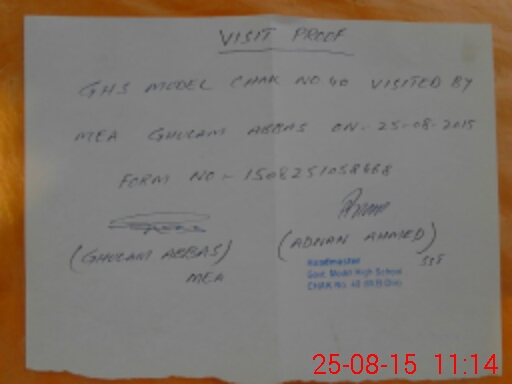 VISIT PROOF
GHS MODEL CHAK NO 40 VISITED BY
MEA GHULAM ABBAS ON - 25-08-2015
FORM NO:- 1508251058468
(GHULAM ABBAS)
MEA
(ADNAN AHMED)
SST
Headmaster
Govt. Model High School
CHAK No. 40
25-08-15 11:14